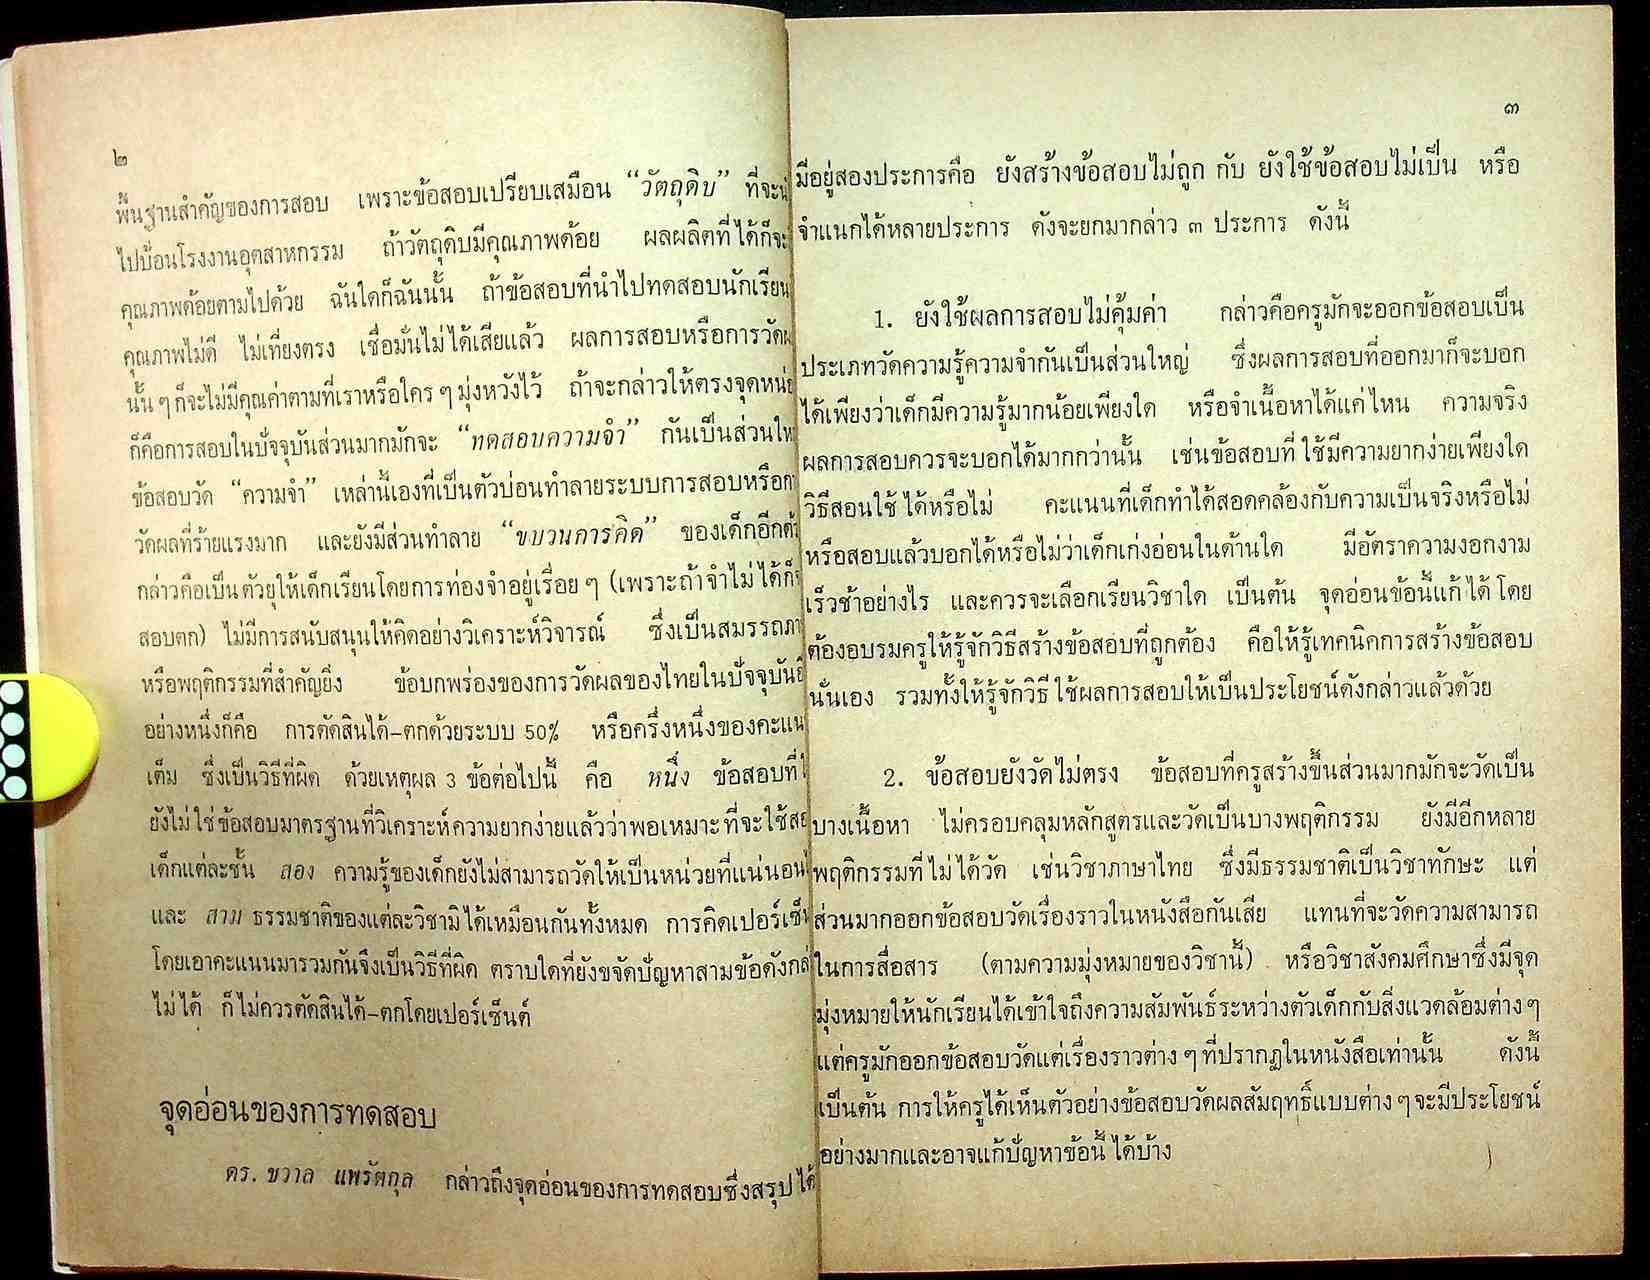 ๒
พื้นฐานสำคัญของการสอบ เพราะข้อสอบเปรียบเสมือน “วัตถุดิบ” ที่จะ
ไปป้อนโรงงานอุตสาหกรรม ถ้าวัตถุดิบมีคุณภาพด้อย ผลผลิตที่ได้ก็จะ
คุณภาพด้อยตามไปด้วย ฉันใดก็ฉันนั้น ถ้าข้อสอบที่นำไปทดสอบนักเรียน
คุณภาพไม่ดี ไม่เที่ยงตรง เชื่อมั่นไม่ได้เสียแล้ว ผลการสอบหรือการวัด
นั้น ๆ ก็จะไม่มีคุณค่าตามที่เราหรือใคร ๆ มุ่งหวังไว้ ถ้าจะกล่าวให้ตรงจุด
ก็คือการสอบในปัจจุบันส่วนมากมักจะ “ทดสอบความจำ” กันเป็นส่วน
ข้อสอบวัด “ความจำ” เหล่านี้เองที่เป็นตัวบ่อนทำลายระบบการสอบหรือ
วัดผลที่ร้ายแรงมาก และยังมีส่วนทำลาย “ขบวนการคิด” ของเด็กอีก
กล่าวคือเป็นตัวยุให้เด็กเรียนโดยการท่องจำอยู่เรื่อย ๆ (เพราะถ้าจำไม่ได้ก็
สอบตก) ไม่มีการสนับสนุนให้คิดอย่างวิเคราะห์วิจารณ์ ซึ่งเป็น
หรือพฤติกรรมที่สำคัญยิ่ง ข้อบกพร่องของการวัดผลของไทยในปัจจุบัน
อย่างหนึ่งก็คือ การตัดสินได้-ตกด้วยระบบ 50% หรือครึ่งหนึ่งของ
เต็ม ซึ่งเป็นวิธีที่ผิด ด้วยเหตุผล 3 ข้อต่อไปนี้ คือ หนึ่ง ข้อสอบที่
ยังไม่ใช่ข้อสอบมาตรฐานที่วิเคราะห์ความยากง่ายแล้วว่าพอเหมาะที่จะใช้
เด็กแต่ละชั้น สอง ความรู้ของเด็กยังไม่สามารถวัดให้เป็นหน่วยที่แน่นอน
และ สาม ธรรมชาติของแต่ละวิชามิได้เหมือนกันทั้งหมด การคิด
โดยเอาคะแนนมารวมกันจึงเป็นวิธีที่ผิด ตราบใดที่ยังขจัดปัญหาสามข้อ
ไม่ได้ ก็ไม่ควรตัดสินได้-ตกโดยเปอร์เซ็นต์
จุดอ่อนของการทดสอบ
ดร. ชวาล แพรัตกุล กล่าวถึงจุดอ่อนของการทดสอบซึ่งสรุปได้
๓
มีอยู่สองประการคือ ยังสร้างข้อสอบไม่ถูก กับ ยังใช้ข้อสอบไม่เป็น หรือ
จำแนกได้หลายประการ ดังจะยกมากล่าว ๓ ประการ ดังนี้
1. ยังใช้ผลการสอบไม่คุ้มค่า กล่าวคือครูมักจะออกข้อสอบเป็น
ประเภทวัดความรู้ความจำกันเป็นส่วนใหญ่ ซึ่งผลการสอบที่ออกมาก็จะบอก
ได้เพียงว่าเด็กมีความรู้มากน้อยเพียงใด หรือจำเนื้อหาได้แค่ไหน ความจริง
ผลการสอบควรจะบอกได้มากกว่านั้น เช่นข้อสอบที่ใช้มีความยากง่ายเพียงใด
วิธีสอนใช้ได้หรือไม่ คะแนนที่เด็กทำได้สอดคล้องกับความเป็นจริงหรือไม่
หรือสอบแล้วบอกได้หรือไม่ว่าเด็กเก่งอ่อนในด้านใด มีอัตราความงอกงาม
เร็วช้าอย่างไร และควรจะเลือกเรียนวิชาใด เป็นต้น จุดอ่อนข้อนี้แก้ได้โดย
ต้องอบรมครูให้รู้จักวิธีสร้างข้อสอบที่ถูกต้อง คือให้รู้เทคนิคการสร้างข้อสอบ
นั่นเอง รวมทั้งให้รู้จักวิธีใช้ผลการสอบให้เป็นประโยชน์ดังกล่าวแล้วด้วย
2. ข้อสอบยังวัดไม่ตรง ข้อสอบที่ครูสร้างขึ้นส่วนมากมักจะวัดเป็น
บางเนื้อหา ไม่ครอบคลุมหลักสูตรและวัดเป็นบางพฤติกรรม ยังมีอีกหลาย
พฤติกรรมที่ไม่ได้วัด เช่นวิชาภาษาไทย ซึ่งมีธรรมชาติเป็นวิชาทักษะ แต่
ส่วนมากออกข้อสอบวัดเรื่องราวในหนังสือกันเสีย แทนที่จะวัดความสามารถ
ในการสื่อสาร (ตามความมุ่งหมายของวิชานี้) หรือวิชาสังคมศึกษาซึ่งมีจุด
มุ่งหมายให้นักเรียนได้เข้าใจถึงความสัมพันธ์ระหว่างตัวเด็กกับสิ่งแวดล้อมต่าง ๆ
แต่ครูมักออกข้อสอบวัดแต่เรื่องราวต่าง ๆ ที่ปรากฏในหนังสือเท่านั้น ดังนี้
เป็นต้น การให้ครูได้เห็นตัวอย่างข้อสอบวัดผลสัมฤทธิ์แบบต่าง ๆ จะมีประโยชน์
อย่างมากและอาจแก้ปัญหาข้อนี้ได้บ้าง